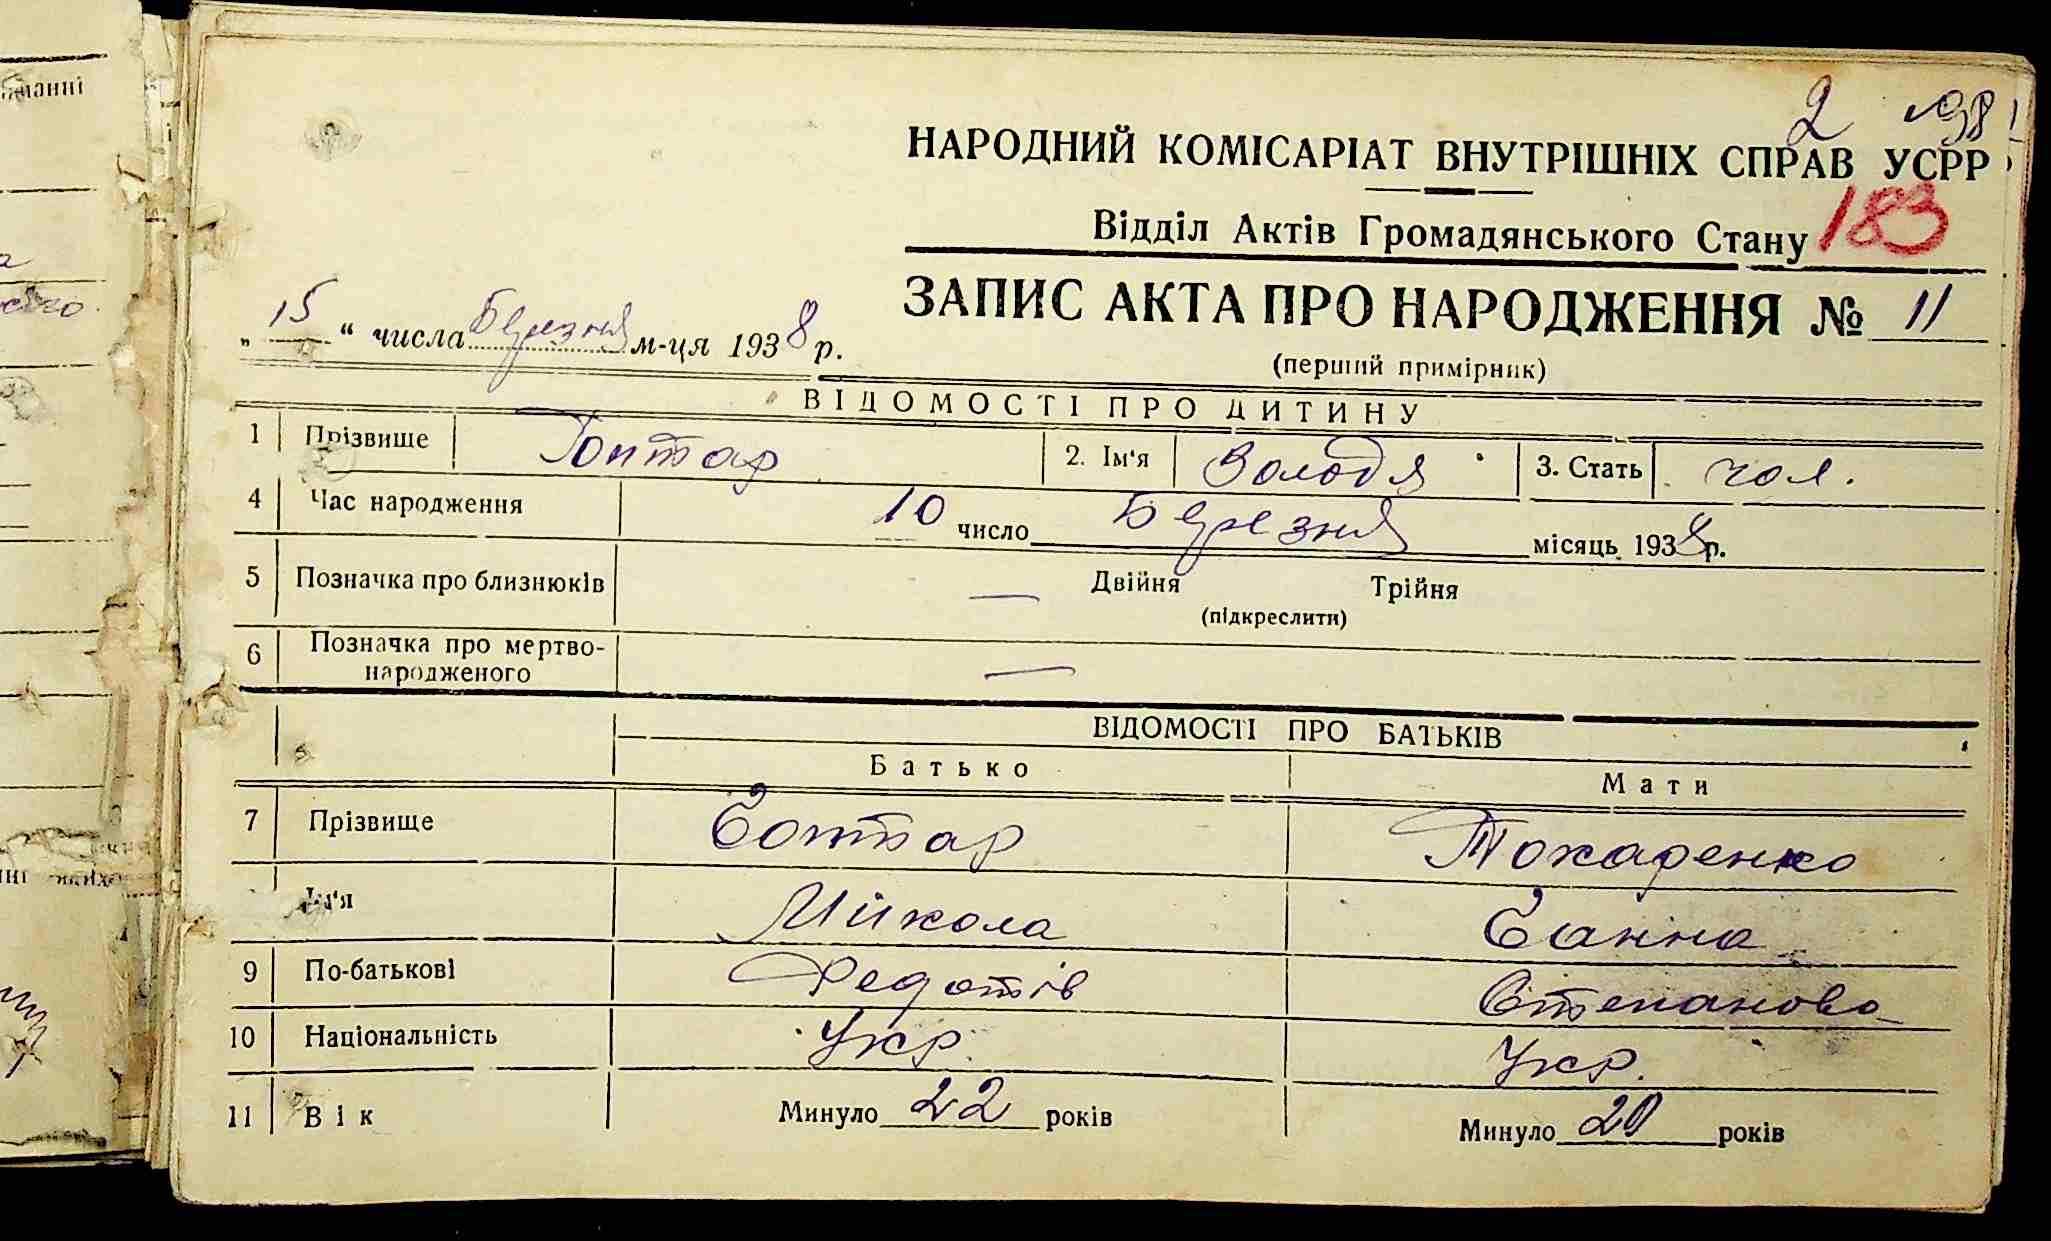 2 1938
НАРОДНИЙ КОМІСАРІАТ ВНУТРІШНІХ СПРАВ УСРР
Відділ Актів Громадянського Стану 183
ЗАПИС АКТА ПРО НАРОДЖЕННЯ № 11
(перший примірник)
„ 15 “ числа Березня м-ця 1938 р.
ВІДОМОСТІ ПРО ДИТИНУ
1 Прізвище Гонтар 2. Ім'я Володя 3. Стать чол.
4 Час народження 10 число Березня місяць 1938 р.
5 Позначка про близнюків — Двійня Трійня
(підкреслити)
6 Позначка про мертво-
народженого —
ВІДОМОСТІ ПРО БАТЬКІВ
Батько Мати
7 Прізвище Гонтар Токаренко
Ім'я Микола Ганна
9 По-батькові Федотів Степанова
10 Національність Укр. Укр.
11 Вік Минуло 22 років Минуло 20 років